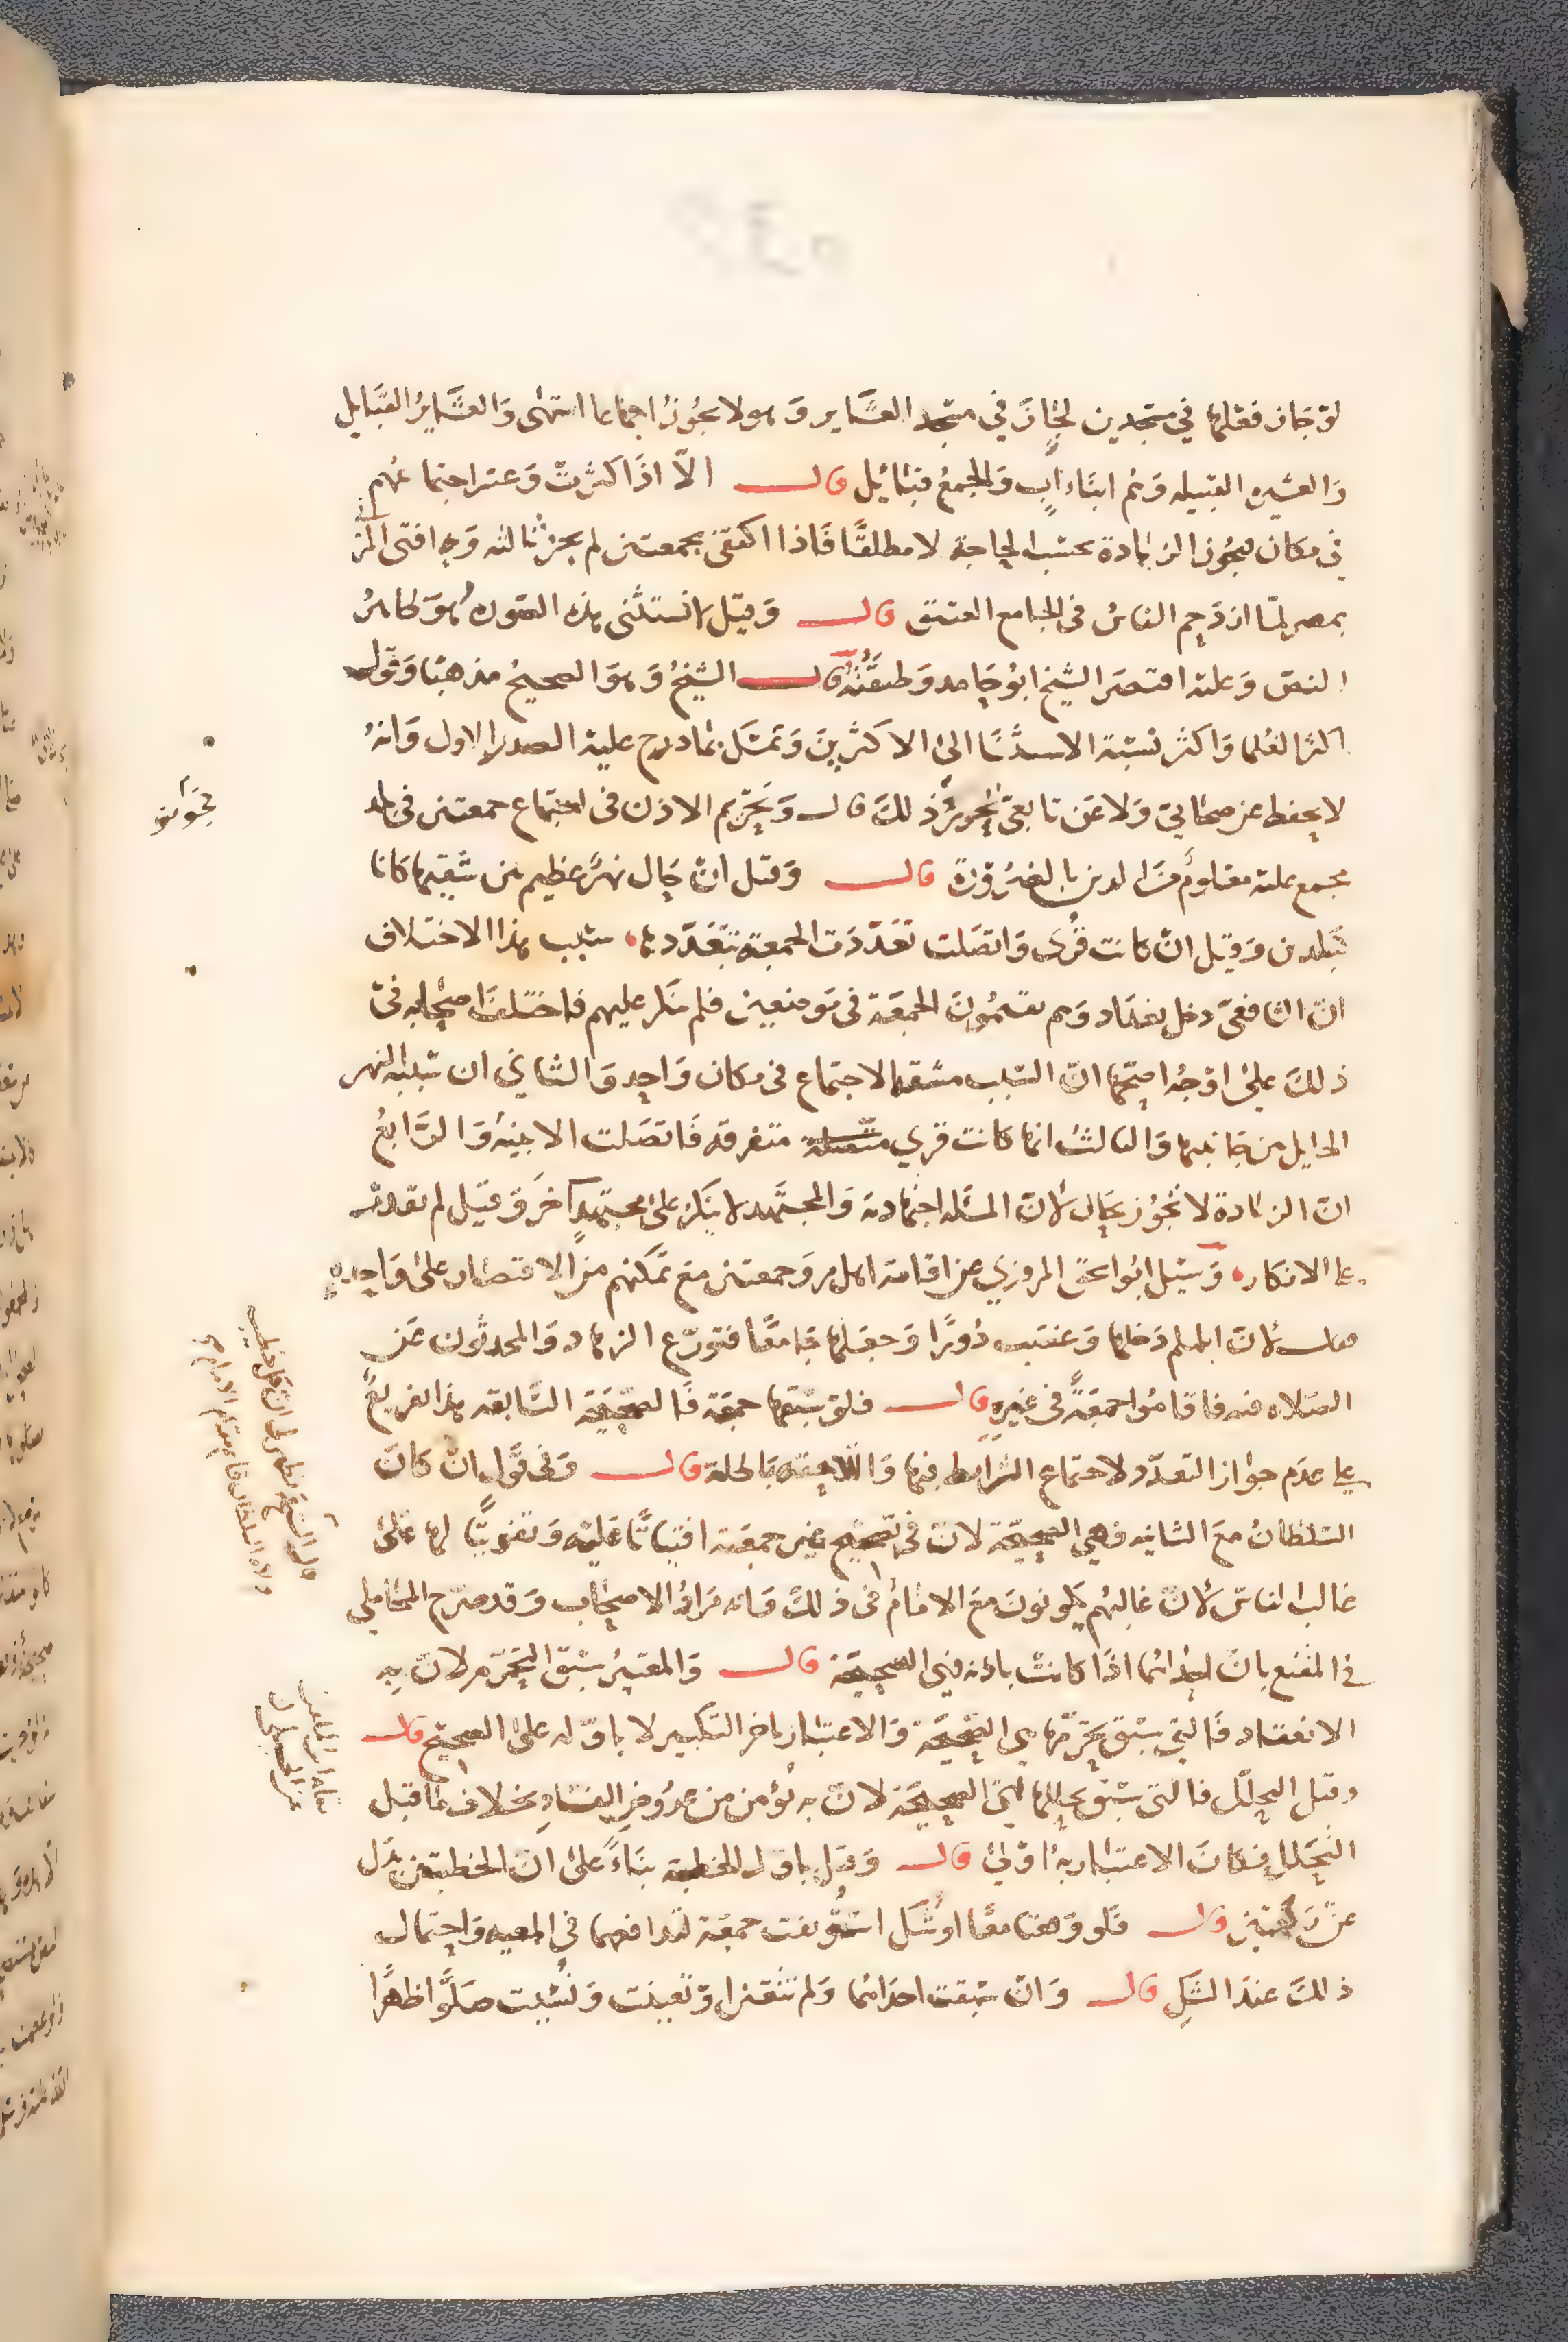 لو جاز فعلها في مسجدين لجاز في مسجد العشاير وهو لا يجوز اجماعا انتهى والعشاير القبايل
والعشيره القبيله وهم ابناء اب والجمع قبائل قال الا اذا كثرت وعسر اجتماعهم
في مكان فيجوز الزيادة بحسب الحاجة لا مطلقا فاذا اكتفى بجمعتين لم يجز ثالثه وبه افتى المزني
بمصر لما ازدحم الناس في الجامع العتيق قال وقيل لا تستثنى هذه الصوره هو ظاهر
النص وعليه اقتصر الشيخ ابو حامد وطبقته قال الشيخ وهو الصحيح مذهبا وقول
اكثر العلما واكثر نسبة الاسد الى الاكثرين وتمسك بما درج عليه الصدر الاول وانه
لا يحفظ عن صحابي ولا عن تابعي تجويز ذلك قال وتحريم الاذن في اجتماع جمعتين في بلد
مجمع عليه معلوم من الدين بالضرورة قال وقيل ان حال نهر عظيم بين شقيها كانا
كبلدين وقيل ان كانت قرى واتصلت تعددت الجمعة بتعددها سبب هذا الاختلاف
ان الشافعي دخل بغداد وهم يقيمون الجمعة في موضعين فلم ينكر عليهم فاختلف اصحابه في
ذلك على اوجه اصحها ان السبب مشقة الاجتماع في مكان واحد والثاني ان سببه النهر
الحايل من جانبيها والثالث انها كانت قري متصلة متفرقه فاتصلت الابنيه والرابع
ان الزيادة لا تجوز بحال لان المسئله اجتهادية والمجتهد لا ينكر على مجتهد آخر وقيل لم يقدر
على الانكار وسئل ابو اسحق المروزي عن اقامة اهل مرو جمعتين مع تمكنهم من الاقتصار على واحده
فقال لان ابا مسلم دخلها وغصب دورا وجعلها جامعا فتورع الزهاد والمحدثون عن
الصلاه فيه فاقاموا جمعة في غيره قال فلو سبقها جمعة فالصحيحة السابقه هذا تفريع
على عدم جواز التعدد لاجتماع الشرايط فيها واللاحقة باطلة قال وفي قول ان كان
السلطان مع الثانيه فهي الصحيحة لان في تصحيح غير جمعته افتياتا عليه وتفويتا لها على
غالب الناس لان غالبهم يكونون مع الامام في ذلك مراد الاصحاب وقد صرح المحاملي
في المقنع بان احداهما اذا كانت باذنه فهي الصحيحة قال والمعتبر سبق التحرم لان به
الانعقاد فالتي سبق تحرمها هي الصحيحة والاعتبار باخر التكبير لا باوله على الصحيح قال
وقيل التحلل فالتي سبق تحللها هي الصحيحة لان به نؤمن من عروض الفساد بخلاف ما قبل
التحلل فكان الاعتبار به اولى قال وقيل باول الخطبة بناء على ان الخطبتين بدل
عن ركعتين قال فلو وقعتا معا او شك استؤنفت جمعة لتدافعهما في المعيه واحتمال
ذلك عند الشك قال وان سبقت احداهما ولم تتعين او تعينت ونسيت صلوا ظهرا